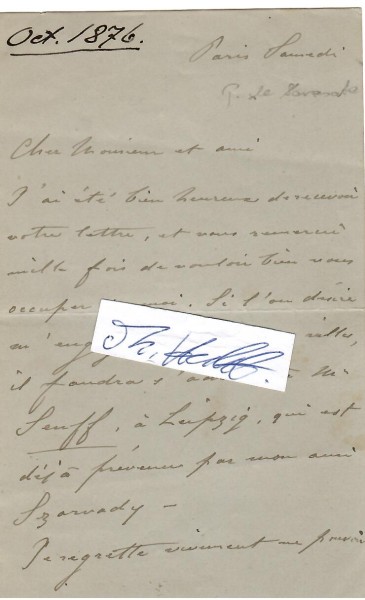 Oct. 1876.
Paris Samedi
G. de
Cher Monsieur et ami
J'ai été bien heureuse de recevoir
votre lettre, et vous remercie
mille fois de vouloir bien vous
occuper de moi. Si l'on désire
m'
il faudra s' M
Senff, à Leipzig, qui est
déjà prévenu par mon ami
Szarvady –
Je regrette vivement ne pouvoir
Th.